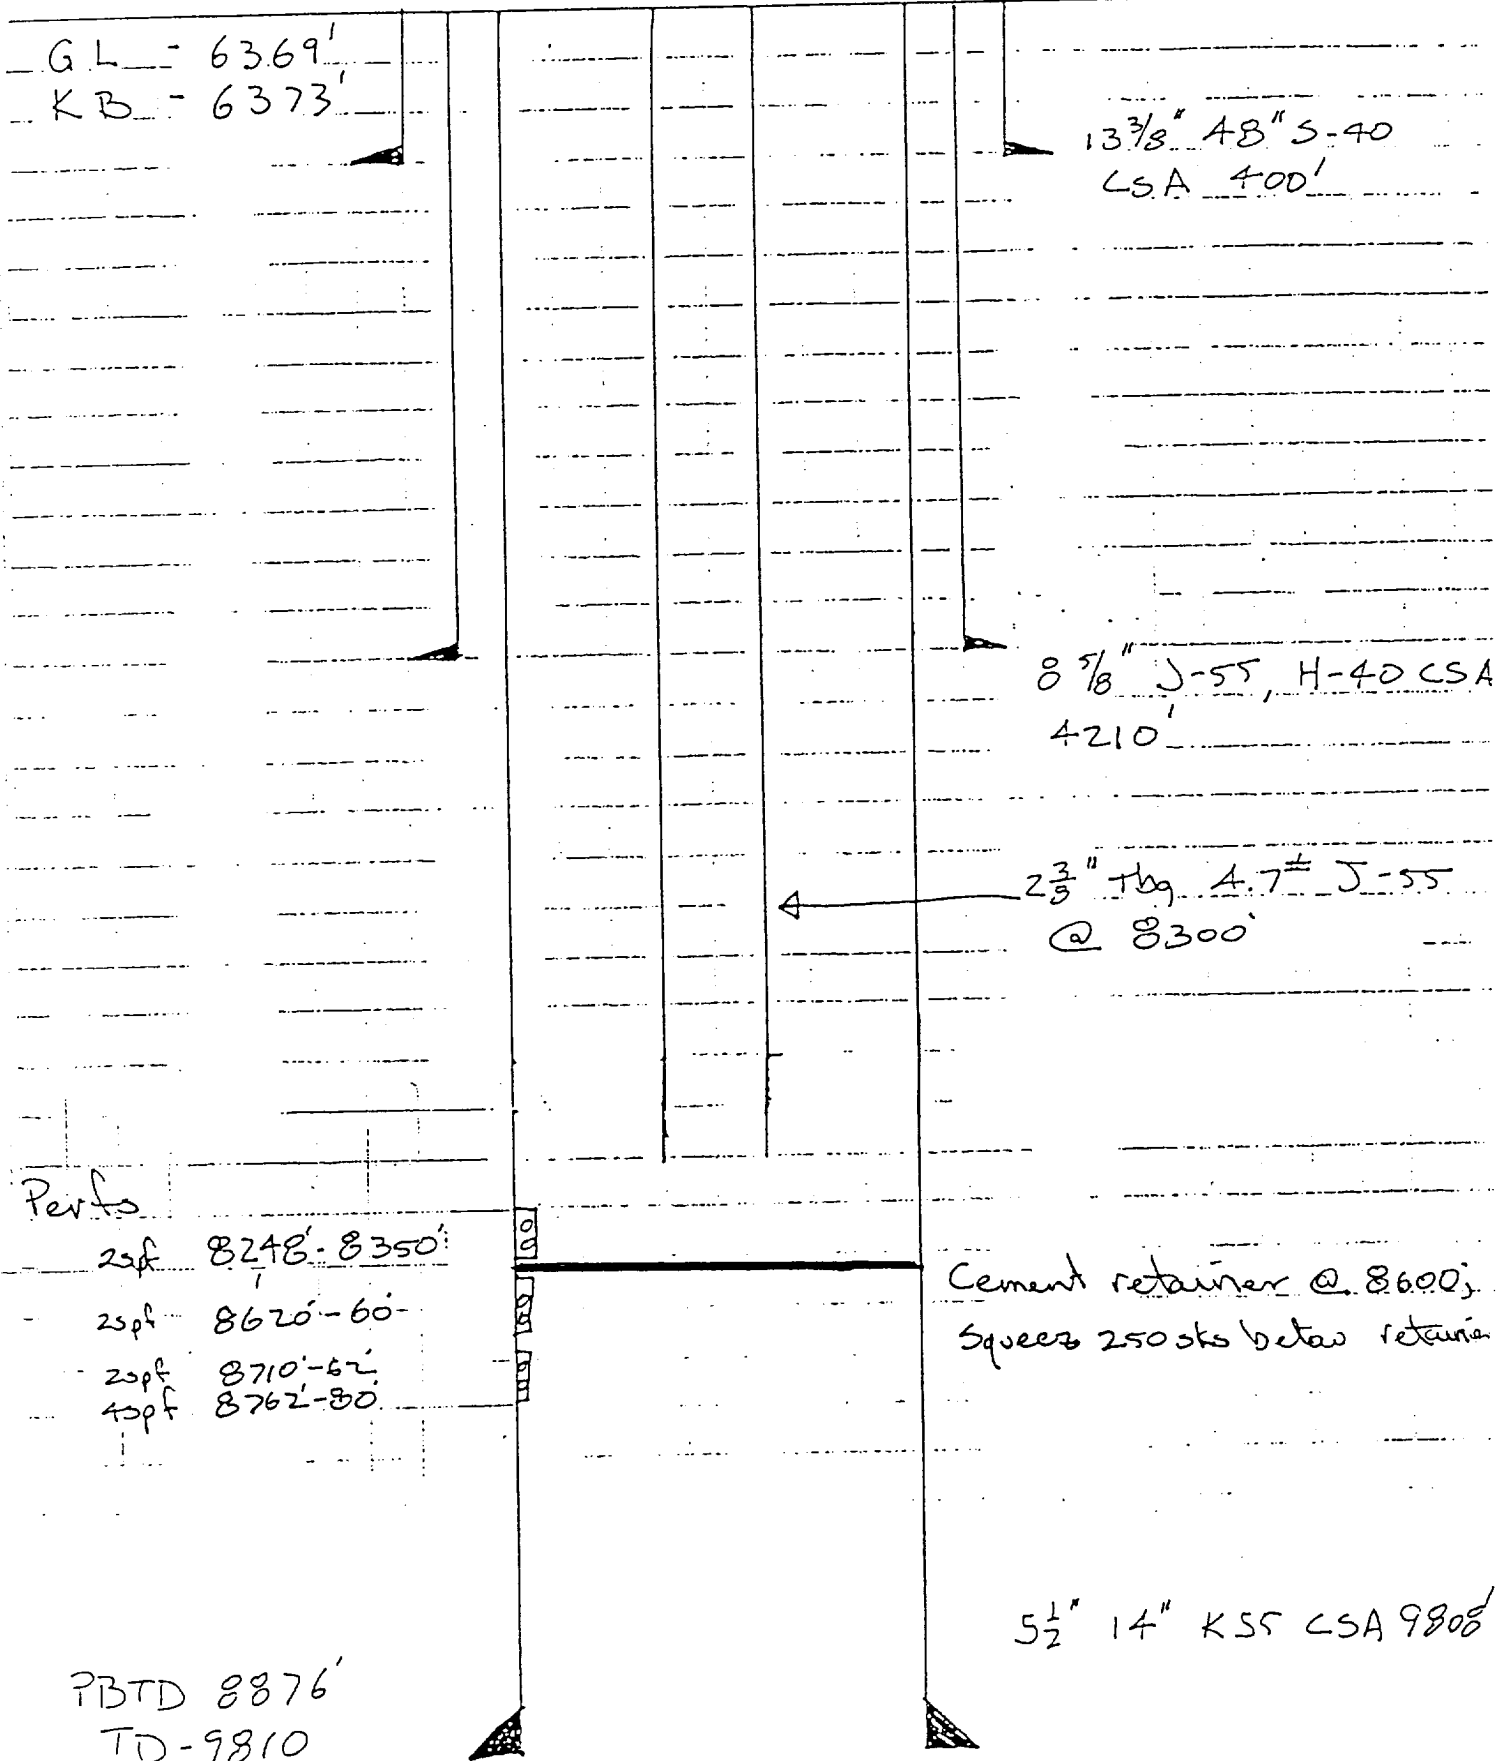 GL - 6369'
KB - 6373'
13 3/8" 48" S-40
CSA 400'
8 5/8" J-55, H-40 CSA
4210'
2 3/8" Tbg 4.7# J-55
@ 8300'
Perfs
2spf 8248'-8350'
2spf 8620'-60'
2spf 8710'-62'
4spf 8762'-80'
Cement retainer @ 8600;
Squeez 250 sks below retainer
5 1/2" 14" K55 CSA 9808'
PBTD 8876'
TD-9810